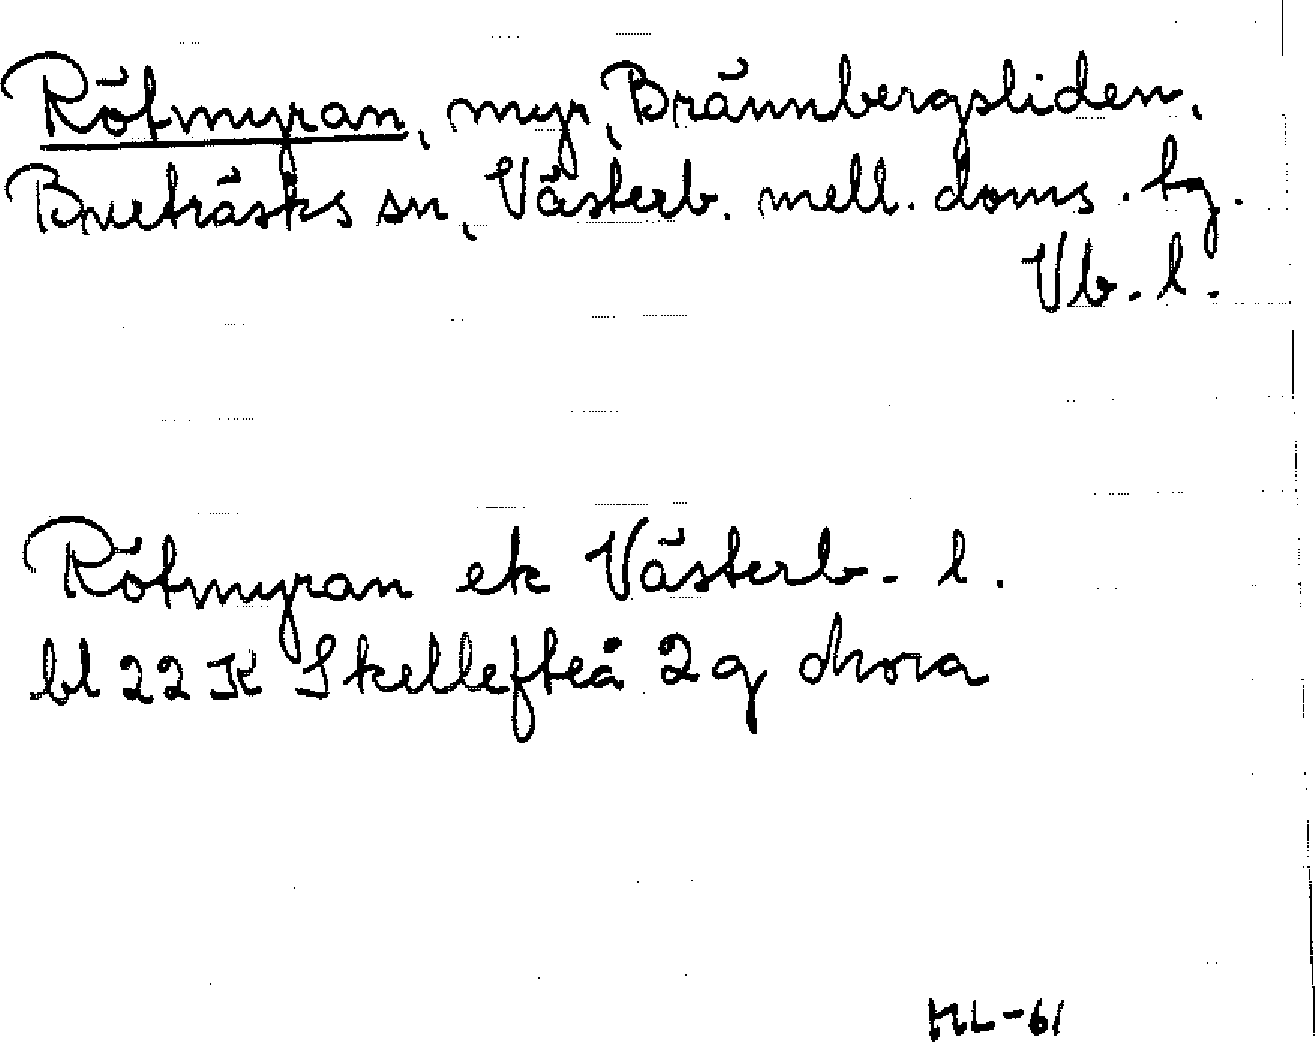 Rötmyran, myr, Brännbergsliden,
Burträsks sn, Västerb. mell. doms. tg.
Vb. l.
Rötmyran ek Västerb. l.
bl 22 K Skellefteå 2 g
ML-61